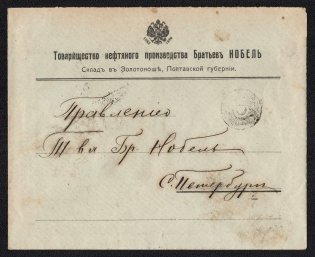 Товарищество нефтяного производства Братьевъ НОБЕЛЬ
Складъ въ Золотоношѣ, Полтавской губерніи.
Правленію
Т ва Бр Нобель
С. Петербургъ